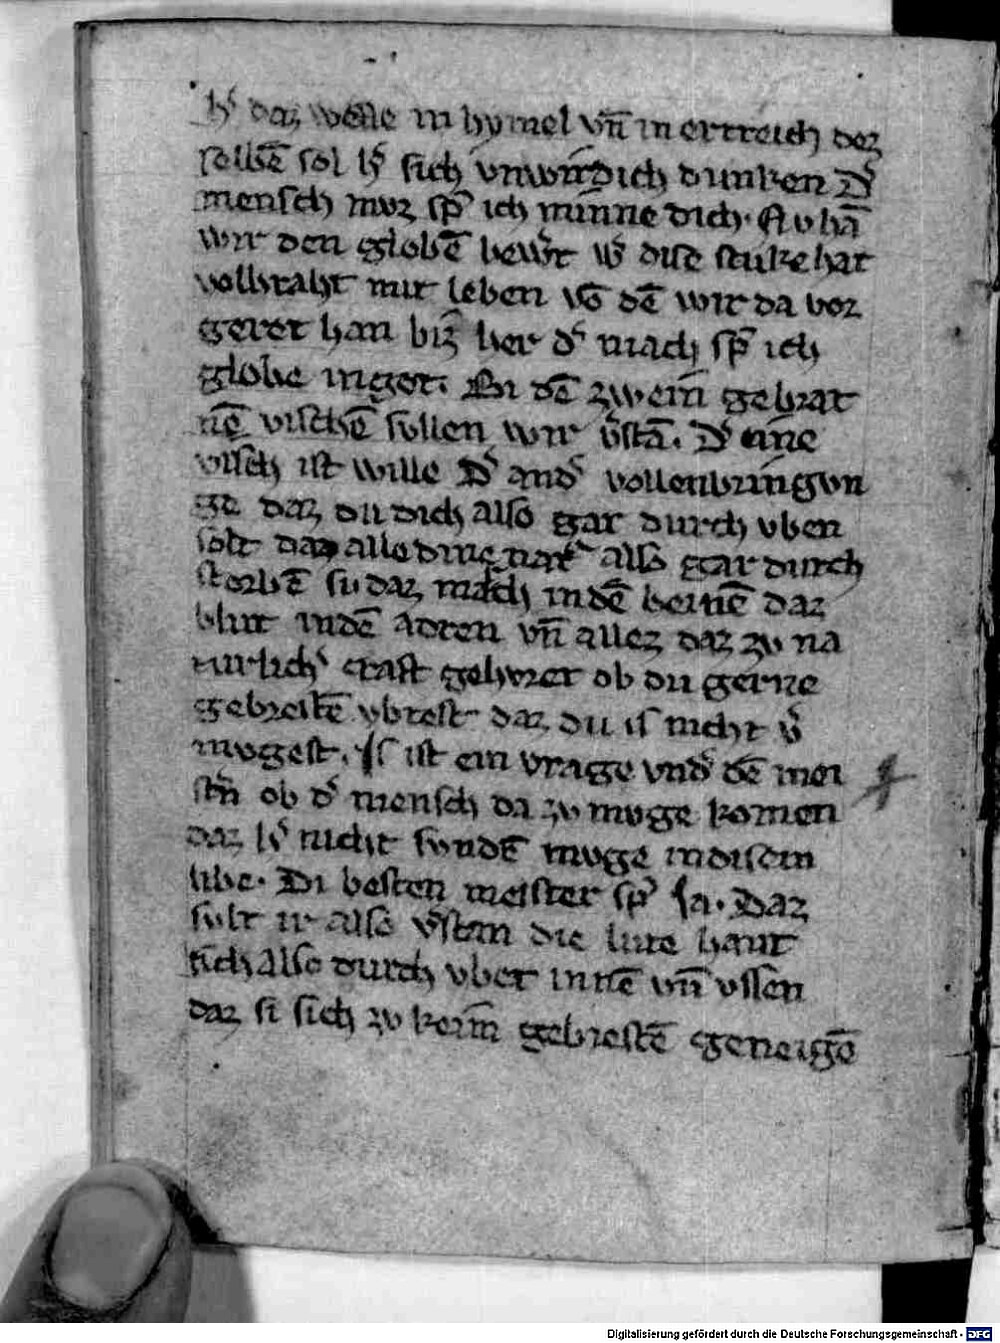 hs daz welle in hymel vn̄ in ertreich dez
selbē sol hs sich vnwirdich dunken Ds
mensch mvz sp̄ ich minne dich. Nv hā
wir den globē bewst ws dise stuke hat
vollbraht mit leben vō dē wir da vor
geret han biz her ds mach sp̄ ich
globe in got. Bi dē zwein gebrat
nē vischē sullen wir vstā. Ds eine
visch ist wille Ds ands vollenbringvn
ge daz du dich also gar durch vben
solt daz alle dine nats also gar durch
storbē si daz mach in dē beinē daz
blut in dē adren vn̄ allez daz zv na
turlichs craft gehoret ob du gerne
gebrestē vbtest daz du is nicht vs
mvgest. Is ist ein vrage vnds dē mei
stn̄ ob ds mensch da zv mvge komen
daz hs nicht svndē mvge in disem
libe. Di besten meister sp̄ Ja. Daz
sult ir also vstan die lute hant
sich also durch vbet innē vn̄ vssen
daz si sich zv keim gebrestē geneigē
Digitalisierung gefördert durch die Deutsche Forschungsgemeinschaft - DFG